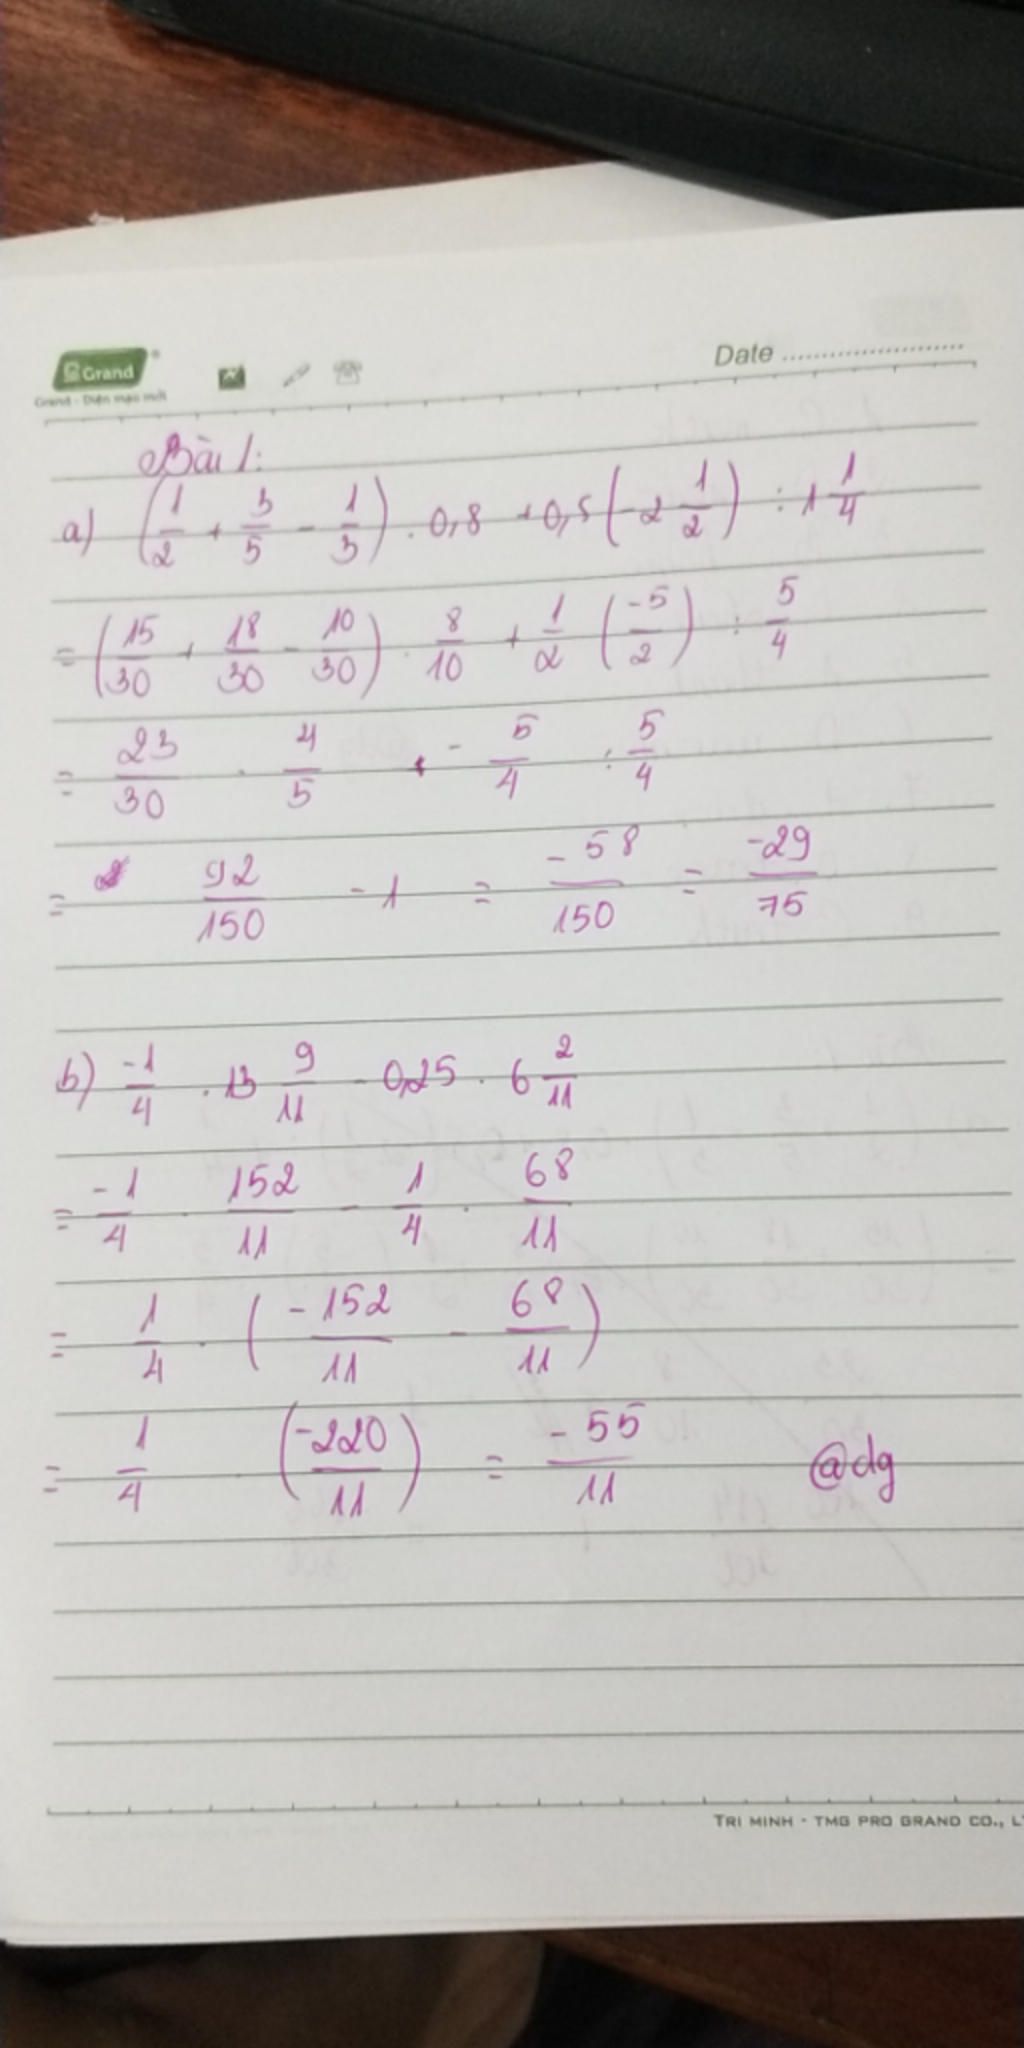 Grand
Grand - Diện mạo mới
Date
Bài 1:
a) (1/2 + 3/5 - 1/3) . 0,8 + 0,5 (-2 1/2) : 1 1/4
= (15/30 + 18/30 - 10/30) . 8/10 + 1/2 (-5/2) : 5/4
= 23/30 . 4/5 + -5/4 : 5/4
= 92/150 - 1 = -58/150 = -29/75
b) -1/4 . 13 9/11 - 0,25 . 6 2/11
= -1/4 . 152/11 - 1/4 . 68/11
= 1/4 . (-152/11 - 68/11)
= 1/4 . (-220/11) = -55/11 @dg
TRI MINH - TMG PRO GRAND CO., L